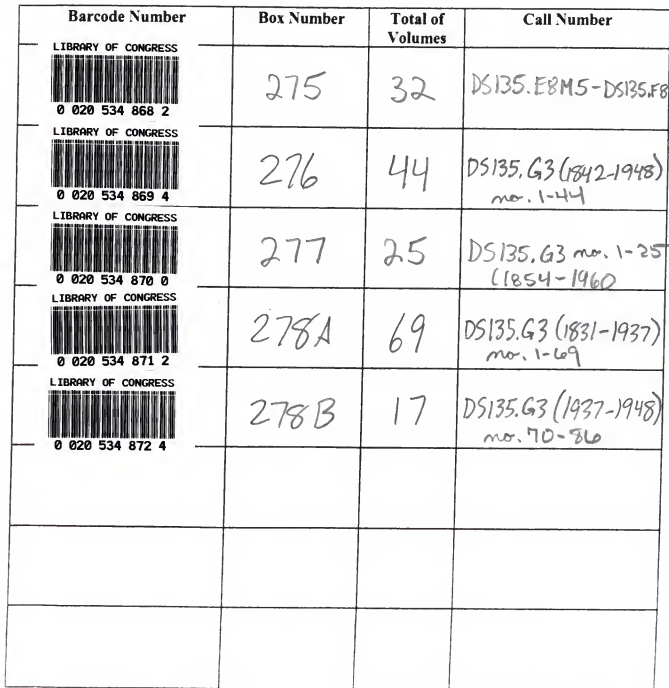 Barcode Number Box Number Total of Volumes Call Number
LIBRARY OF CONGRESS
0 020 534 868 2
275 32 DS135.E8M5-DS135.F8
LIBRARY OF CONGRESS
0 020 534 869 4
276 44 DS135.G3 (1842-1948)
no. 1-44
LIBRARY OF CONGRESS
0 020 534 870 0
277 25 DS135.G3 no. 1-25
(1854-1960
LIBRARY OF CONGRESS
0 020 534 871 2
278A 69 DS135.G3 (1831-1937)
no. 1-69
LIBRARY OF CONGRESS
0 020 534 872 4
278B 17 DS135.G3 (1937-1948)
no. 70-86